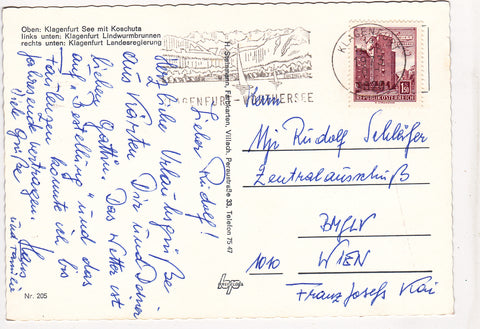 Oben: Klagenfurt See mit Koschuta
links unten: Klagenfurt Lindwurmbrunnen
rechts unten: Klagenfurt Landesregierung
KLAGENFURT - WÖRTHERSEE
KLAGENFURT
REPUBLIK ÖSTERREICH
Lieber Rudolf!
Herzliche Urlaubsgrüße
aus Kärnten Dir und Deiner
lieben Gattin. Das Wetter ist
auf "Bestellung" und das
konnte ich bis
Jahresende vertragen.
Viele Grüße
Hans
und Familie
H. Steinwenn, Farbkarten, Villach, Peraustraße 33, Telefon 75 47
Herrn
Mjr Rudolf Schläfer
Zentralausschuß
BMfLV
1010 WIEN
Franz Josefs Kai
Nr. 205